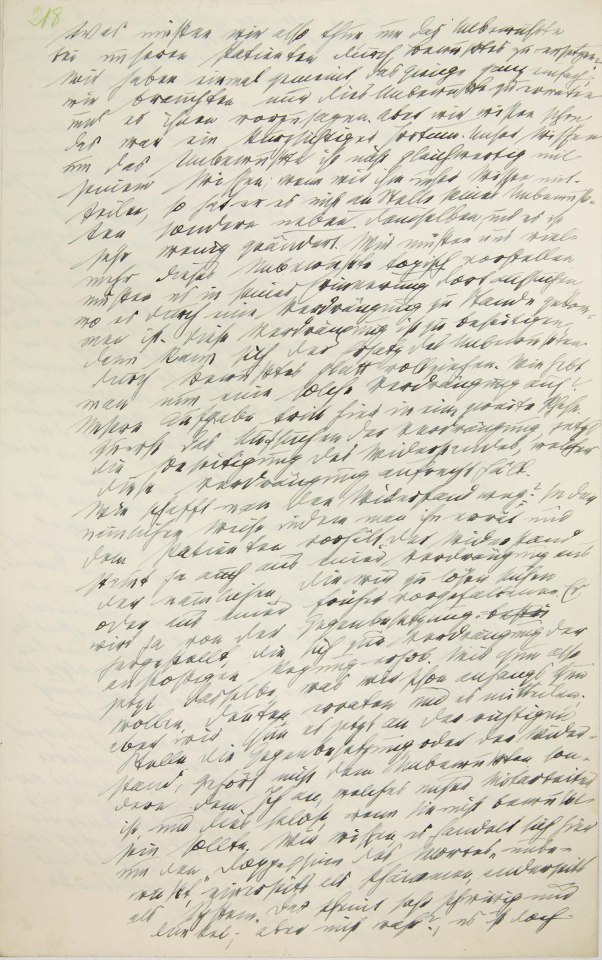 218
Was müssen wir also thun um das Unbewußte
bei unserem Patienten durch Bewußtes zu ersetzen.
Wir haben einmal gemeint, das ginge ganz einfach,
wir brauchten nur dies Unbewußte zu erraten
und es ihm vorzusagen. Aber wir wissen schon,
das war ein kurzsichtiger Irrtum. Unser Wissen
um das Unbewußte ist nicht gleichwertig mit
seinem Wissen; wenn wir ihm unser Wissen mit-
teilen, so hat er es nicht an Stelle seines Unbewuß-
ten sondern neben demselben und es ist
sehr wenig geändert. Wir müssen uns viel-
mehr dieses Unbewußte topisch vorstellen
müssen es in seiner Erinnerung dort aufsuchen,
wo es durch eine Verdrängung zu Stande gekom-
men ist. Diese Verdrängung ist zu beseitigen,
dann kann sich der Ersatz des Unbewußten
durch Bewußtes glatt vollziehen. Wie hebt
man nun eine solche Verdrängung auf?
Unsere Aufgabe tritt hier in eine zweite Phase.
Zuerst das Aufsuchen der Verdrängung,
die Beseitigung des Widerstandes, welcher
diese Verdrängung aufrecht hält.
Wie schafft man den Widerstand weg? In der
nämlichen Weise indem man ihn errät und
dem Patienten vorhält. Der Widerstand
stammt ja auch aus einer Verdrängung aus
der nämlichen, die wir zu lösen suchen
oder aus einer früher vorgefallenen. Er
wird ja von der Gegenbesetzung
hergestellt, die sich zur Verdrängung der
anstößigen Regung erhob. Wir thun also
jetzt dasselbe, was wir schon anfangs thun
wollten, deuten, erraten und es mitteilen;
aber wir thun es jetzt an der richtigen
Stelle. Die Gegenbesetzung oder der Wider-
stand, gehört nicht dem Unbewußten son-
dern dem Ich an, welches unser Mitarbeiter
ist, und dies selbst, wenn sie nicht bewußt
sein sollte. Wir wissen, es handelt sich hier
um den Doppelsinn des Wortes „unbe-
wußt", einerseits als Phänomen, anderseits
als System. Das scheint sehr schwierig und
dunkel; aber nicht wahr?, es ist doch